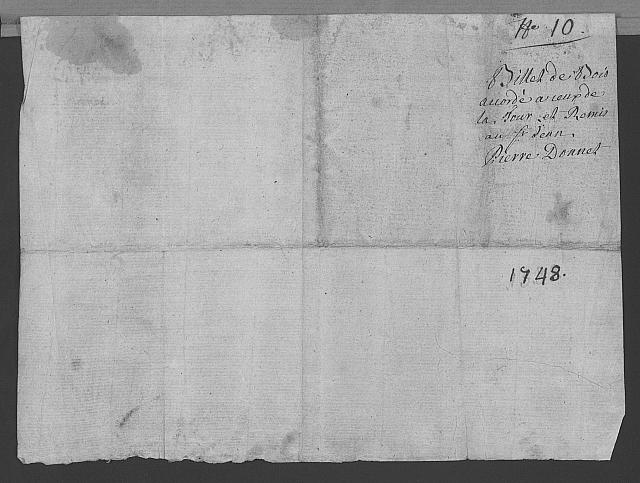 No 10.
Billet de Bois
accordé a ceux de
la Tour et Remis
au Sr Jean
Pierre Donnet
1748.